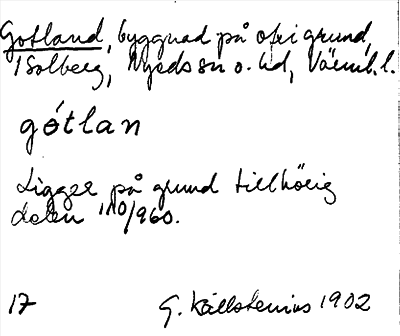 Gotland, byggnad på ofri grund,
1 Solberg, Nyeds sn o. hd, Värml. l.
gótlan
Ligger på grund tillhörig
delen 110/960.
17 G. Kallstenius 1902